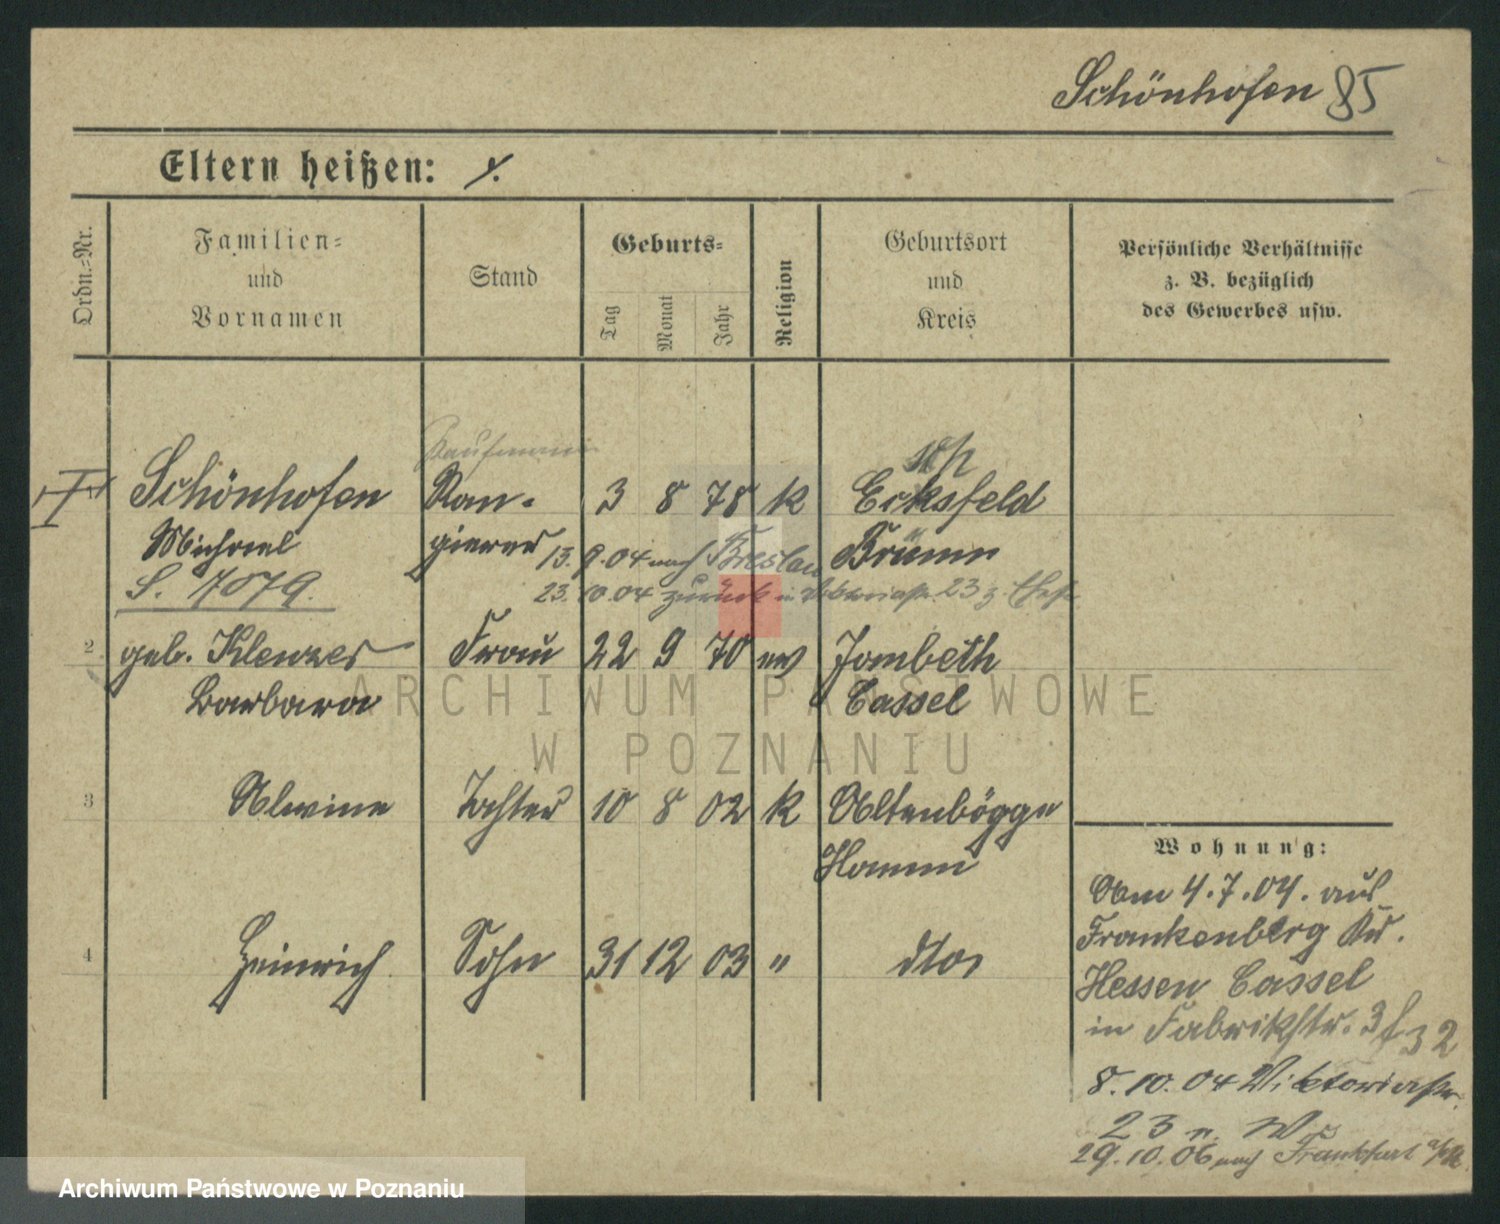 Schönhofen 85
Eltern heißen: /.
Ordn.-Nr.
Familien-
und
Vornamen
Stand
Geburts-
Tag
Monat
Jahr
Religion
Geburtsort
und
Kreis
Persönliche Verhältnisse
z. B. bezüglich
des Gewerbes usw.
Kaufmann
Schönhofen Ran- 3 8 78 k Ecksfeld
Michael gierer Brünn
13. 9. 04 nach Breslau
S. 7079.
23. 10. 04 zurück 23 z.
2 geb. Klenzer Frau 22 9 70 ev Jombeth
Barbara Cassel
3 Alwine Tochter 10 8 02 k Altenbögge
Hamm
4 Heinrich Sohn 31 12 03 " dto
Wohnung:
Am 4.7.04. aus
Frankenberg Kr.
Hessen Cassel
in Fabrikstr. 32
8.10.04 Viktoriastr.
23
29.10.06 nach Frankfurt a/M
ARCHIWUM PAŃSTWOWE
W POZNANIU
Archiwum Państwowe w Poznaniu